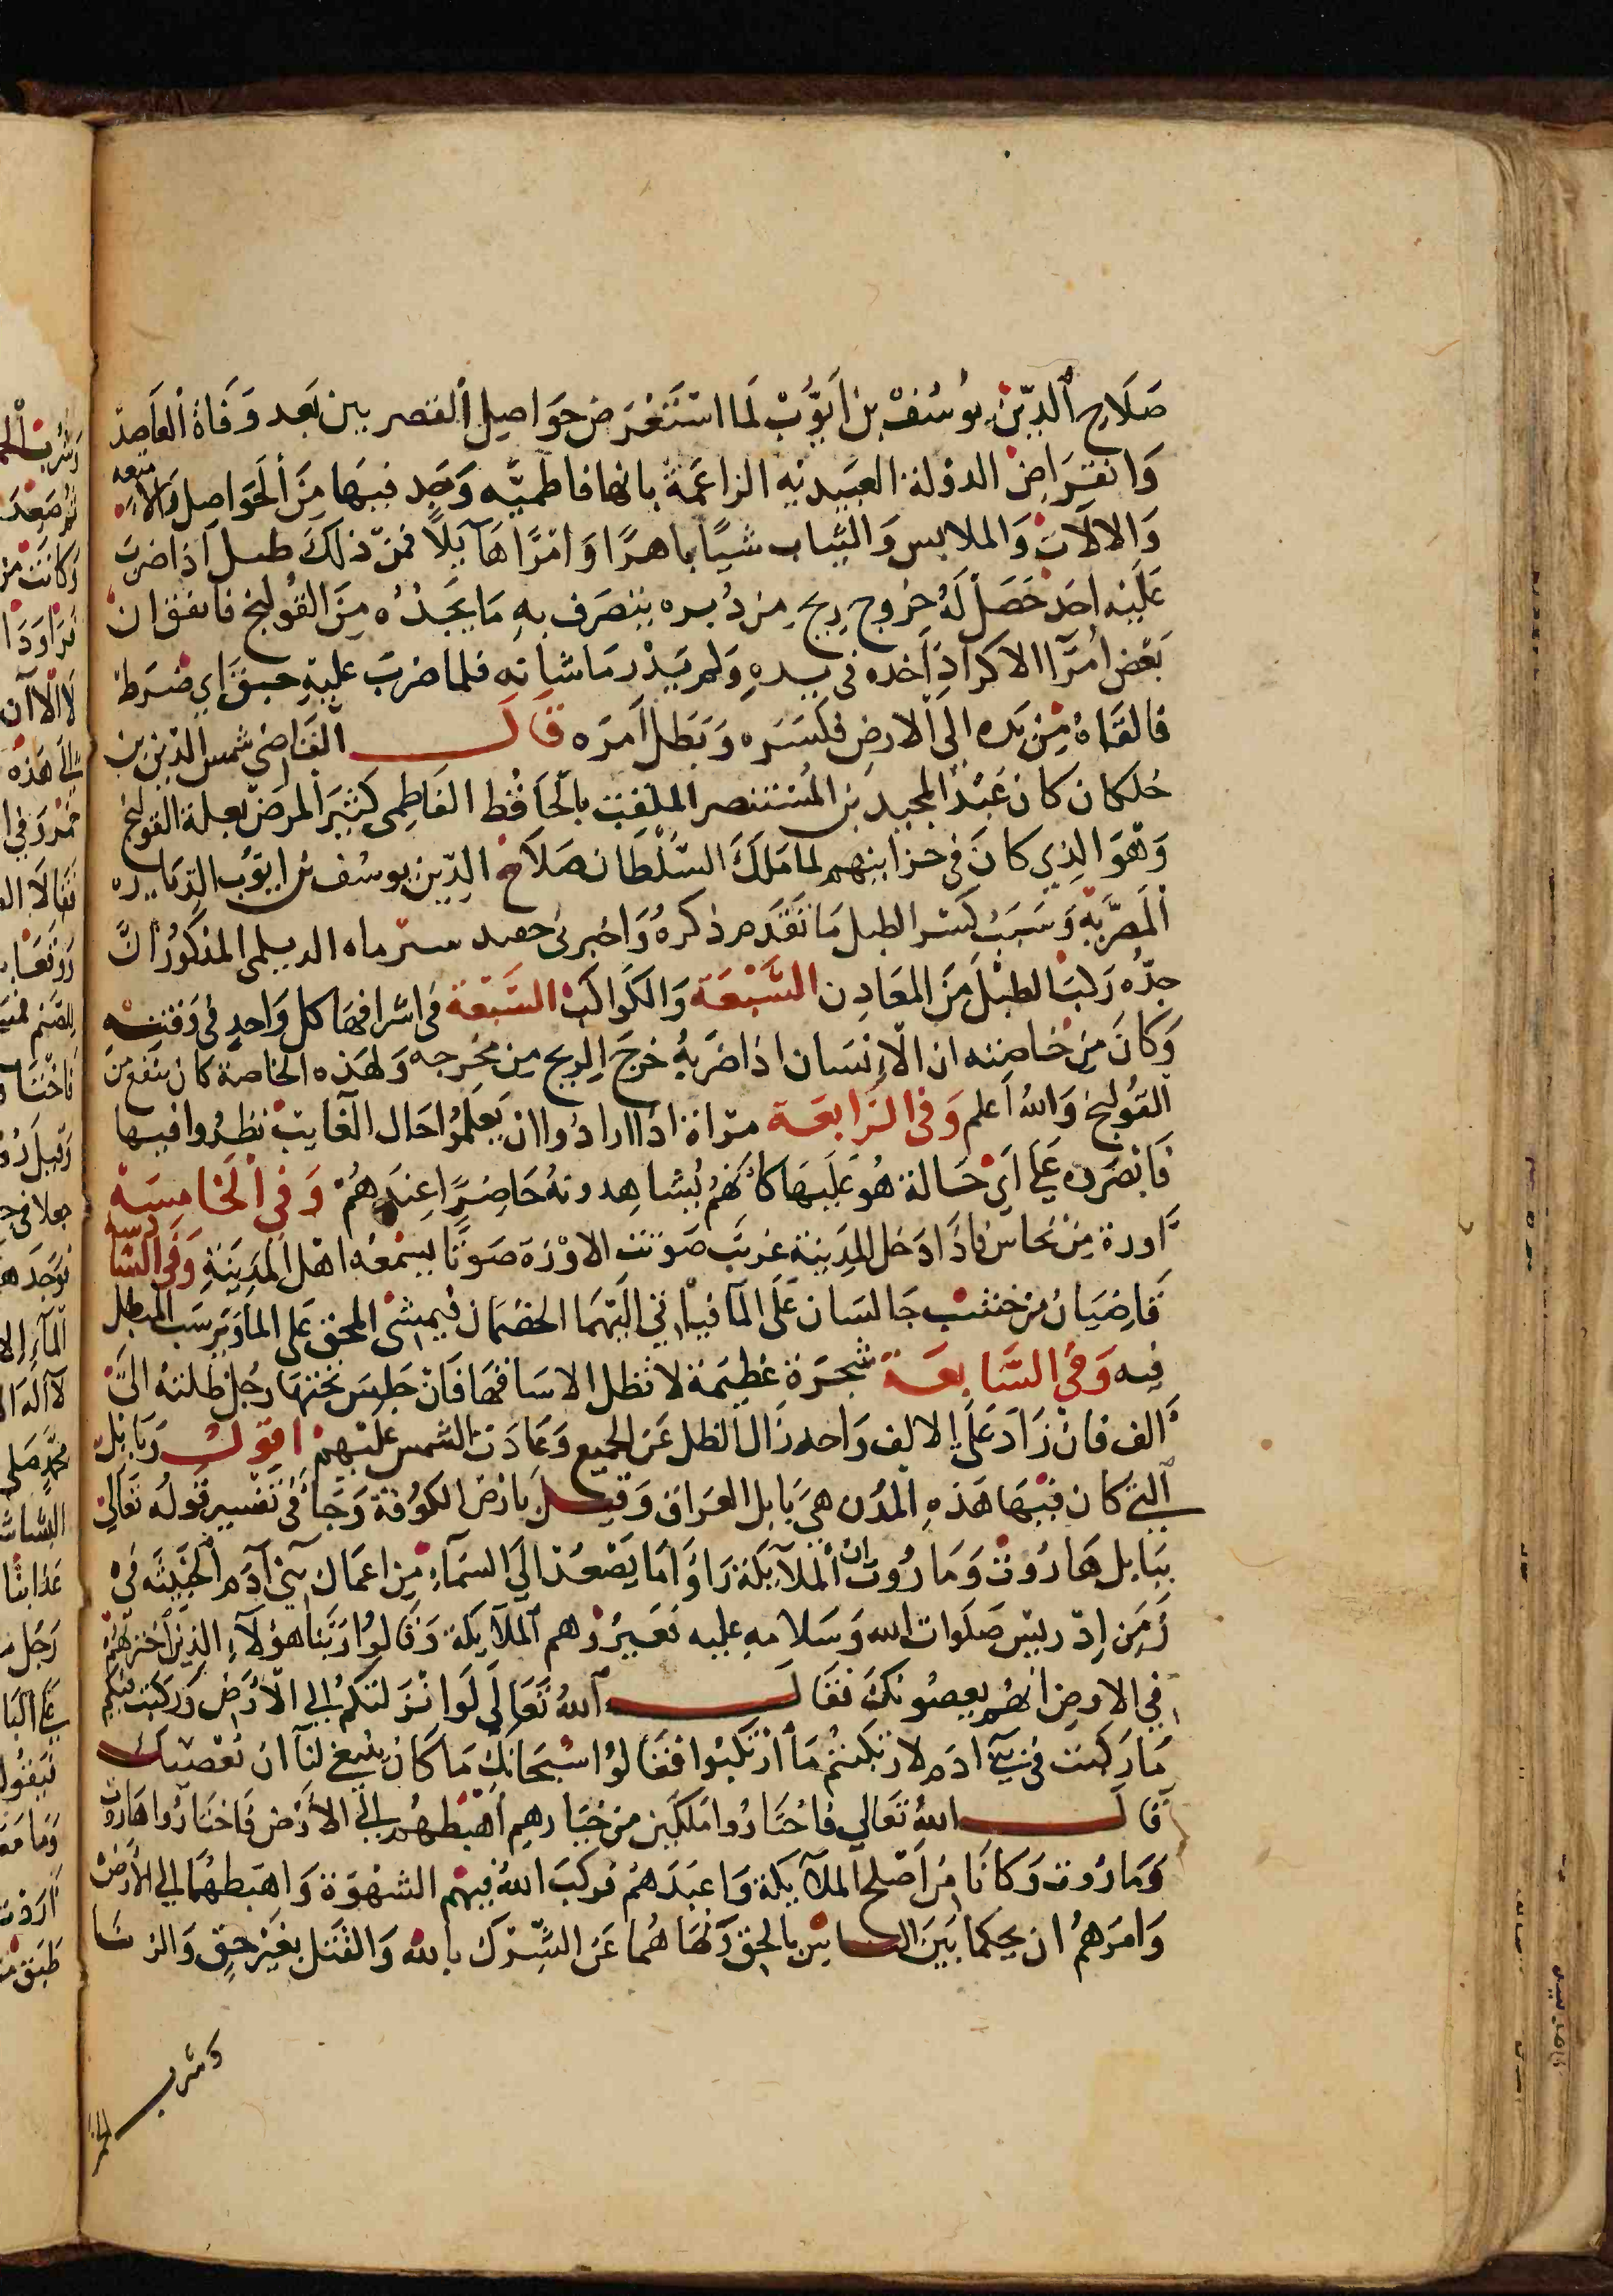 صَلَاح الدّين يوسُفْ بن ايوّبْ لما استَعْرَض حَوَاصِل القصر بين بَعد وَفَاة العَاصد
وَانقِرَاضِ الدولة العبيديه الزاعمَة بانها فاطميّه وَجد فيهَا مِنَ الحَوَاصل وَالامتعه
وَالالَات وَالملابس وَالثياب شيًا باهرًا وَامرًا هَآيلاً فمن ذلكَ طبل اذا ضربَ
عَلَيْه احَد حَصَل لَهُ خرُوج ريح مِن دُبره ينصَرف به مَا يجَدُه مِنَ القولنج فاتفق ان
بَعْض امُرَآ الاكراد اخَده في يدهِ وَلم يَدْر مَا شانه فلما ضربَ عليهِ حبق اي ضرَط
فالقاهُ مِن يَده الى الارضِ فكسَرَه وَبَطل امرَه قَالَ القاضي شمس الدين بن
خلكان كان عَبْد المجيد بن المُستنصر الملقب بالحَافظ الفاطمي كَثير المرَض بعلة القولنج
وَهوَ الذِي كانَ في خزاينهم لما ملَكَ السُّلْطَان صَلاح الدّين يوسُف بن ايوّب الدّيَار
المصَريّةِ وَسَبَبُ كسر الطبل مَا تقدم ذكرهُ وَاخبرني حفيد سىرماه الديلمى المذكور انّ
جدّه رَكبَ الطبْل مِنَ المعَادِن السَّبْعَة وَالكوَاكب السَّبعَة في اشرافهَا كل وَاحدٍ في وَقتِه
وَكانَ مِن خاصِته ان الاِنسَان اذا ضرَبهُ خرَجَ الريح مِن مخرجه وَلهذه الخاصة كان ينفع مِنَ
القولنج وَالله اعلم وَفي الرابعَة مرآة اذا ارادوا ان يَعلمُوا حَال الغايب نظرُوا فيها
فابْصَروه على اي حَالة هُو عَليهَا كانهم يُشاهدونهُ حَاضِرًا عندهُمْ وَفي الخَامِسَة
اوزة مِن نحاس فاذا دَخل المدينة غريب صَوّتت الاوْزة صَوتًا يسمعْه اهْل المدِينةِ وَفي السَّادسة
قاضِيَان مِن خشب جَالسَان عَلَى المآ فياْتي اليْهمَا الخصْمان فيمشى المحِق على الما وَيرسبُ المبطل
فيه وَفي السَّابعَة شجَرَة عَظيمَة لا تظل الا سَاقهَا فان جلِسَ تحتهَا رجُل ظلتهُ الى
الف فان زَادَ عَلى الالف وَاحد زَال الظل عَن الجميع وَعَادَت الشمس عَليْهمْ اقوَل وَبَابل
التي كان فيهَا هَذهِ المدُن هي بَابل العرَاق وَقيل بَارض الكوُفة وَجَآ في تفسير قولُه تعالى
ببَابل هَارُوتْ وَمَارُوت ان المَلآئكة رَاوا مَا يَصْعَد الى السَمآءِ مِن اعمَال بَني آدَم الخبيثه في
زَمَن اِدْريس صَلَوات الله وَسَلامهِ عليه فعَيرُوهم الملآيكة وَقالوا رَبّنا هؤلآءِ الذين اخترتهُمْ
في الارض انهم يعصُونكَ فقالَ اللهُ تَعَالَى لَوْ انزَلتكمُ الى الارَض وَرَكبت فيكم
مَا رَكبت في بَني ادَم لارتكبتُم مَا ارْتكبُوا فقالوا سُبْحَانَك مَا كان ينبغي لنَا ان نعْصيك
قالَ اللهُ تعَالى فاختَارُوا مَلكين مِن خيَاركم اهبطهُمَا الى الاَرْض فاختارُوا هَارُوت
وَمَارُوت وَكانا مِن اصْلح الملآئكة وَاعبَدَهمْ فركبَ اللهُ فيهم الشهْوَة وَاهبَطهُمَا الى الارَضْ
وَامرَهُم ان يحكما بَينَ الناس بالحق وَنهَاهُما عَن الشِّرْك بالله وَالقتل بغير حَقٍ وَالزنا
وشرب الخمر